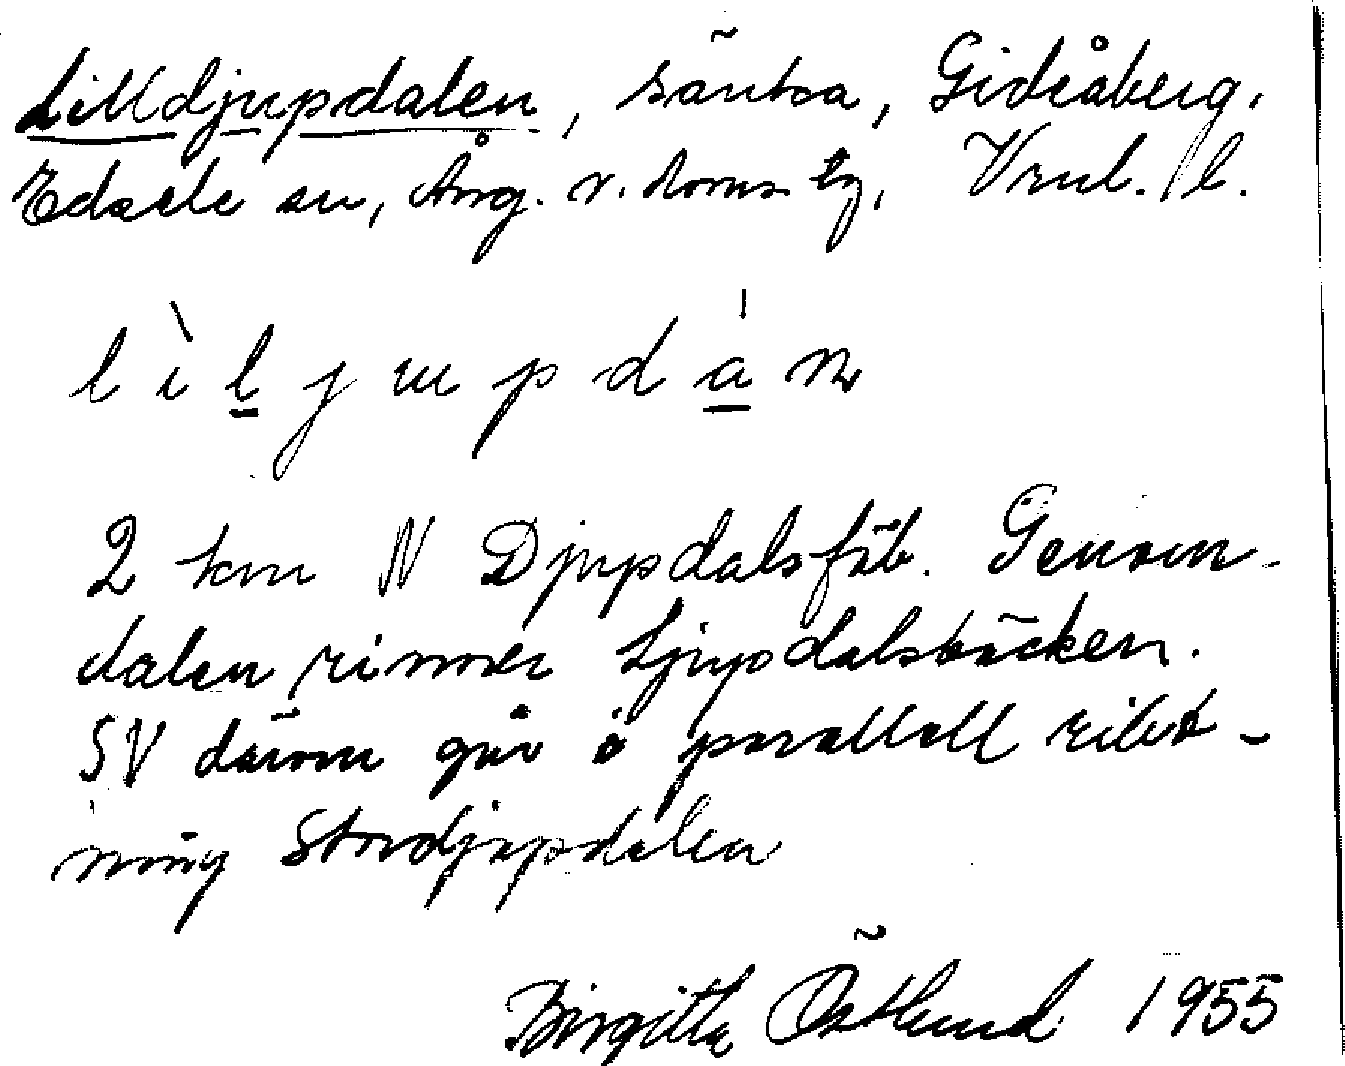 Lilldjupdalen, sänka, Gideåberg,
Edsele sn, Ång. v. doms tg, Vrnl. l.
l ì l j u p d á n
2 km N Djupdalsfäb. Genom-
dalen rinner Djupdalsbäcken.
SV därom går i parallell rikt-
ning Stordjupdalen
Birgitta Östlund 1955